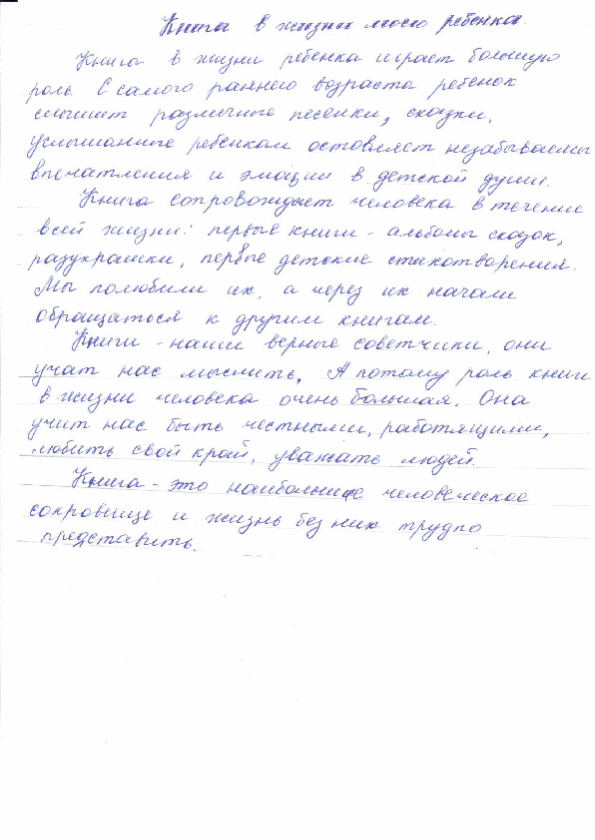 Книга в жизни моего ребенка.
Книга в жизни ребенка играет большую
роль. С самого раннего возраста ребенок
слышит различные песенки, сказки.
Услышанные ребенкам остовляет незабываемы
впечатления и эмации в детской души.
Книга сопровождает человека в течение
всей жизни: первые книги - альбомы сказок,
разукрашки, первые детские стихотворения.
Мы полюбили их, а через их начали
обращаться к другим книгам.
Книги - наши верные советчики, они
учат нас мыслить, А потому роль книги
в жизни человека очень большая. Она
учит нас быть честными, работящими,
любить свой край, уважать людей.
Книга - это наибольшее человеческое
сокровище и жизнь без них трудно
представить.